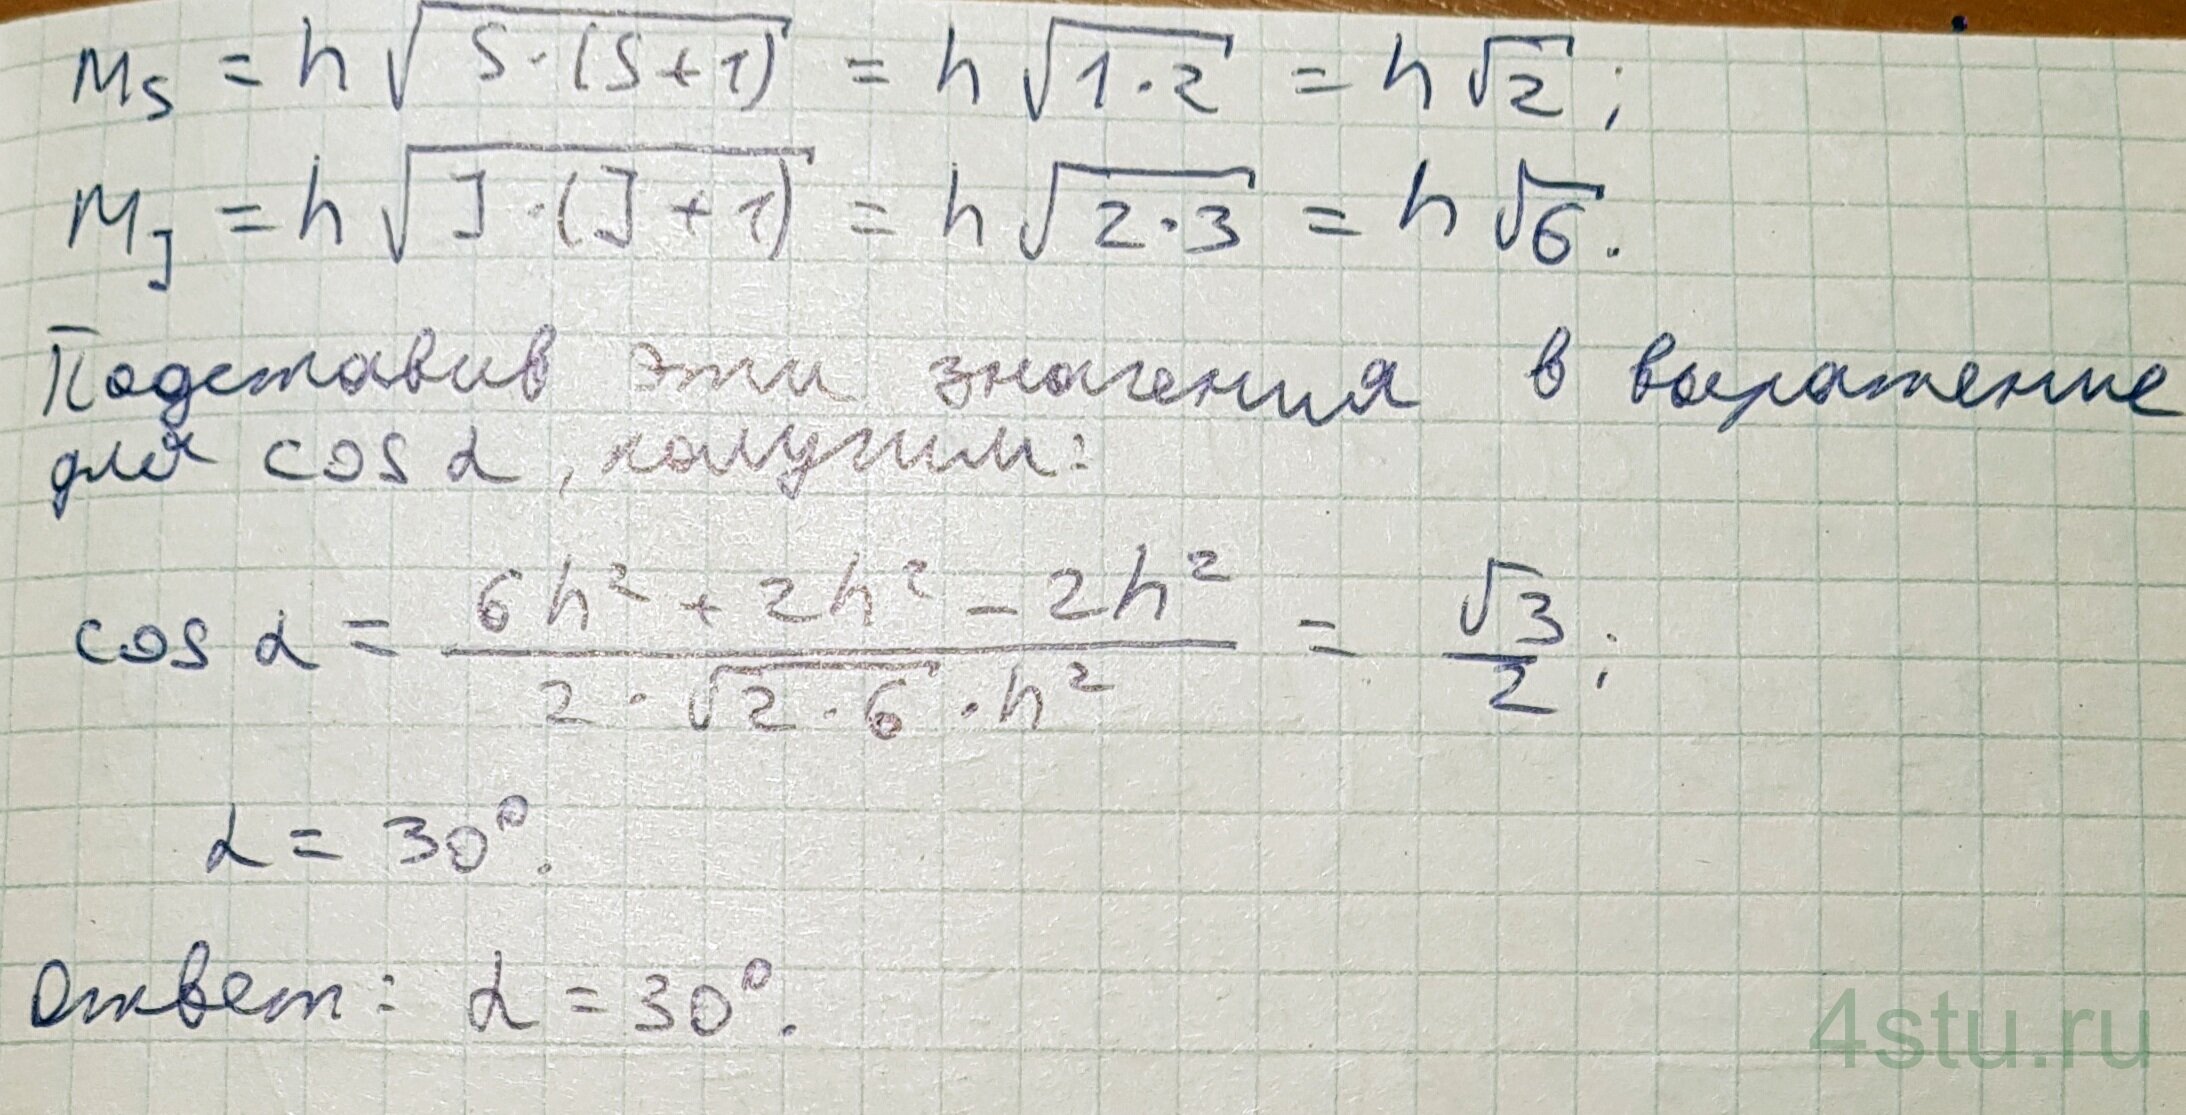 Ms = h√S·(S+1) = h√1·2 = h√2;
MJ = h√J·(J+1) = h√2·3 = h√6.
Подставив эти значения в выражение
для cos α, получим:
cos α = (6h² + 2h² − 2h²) / (2·√2·6·h²) = √3/2;
α = 30°.
Ответ: α = 30°.
4stu.ru